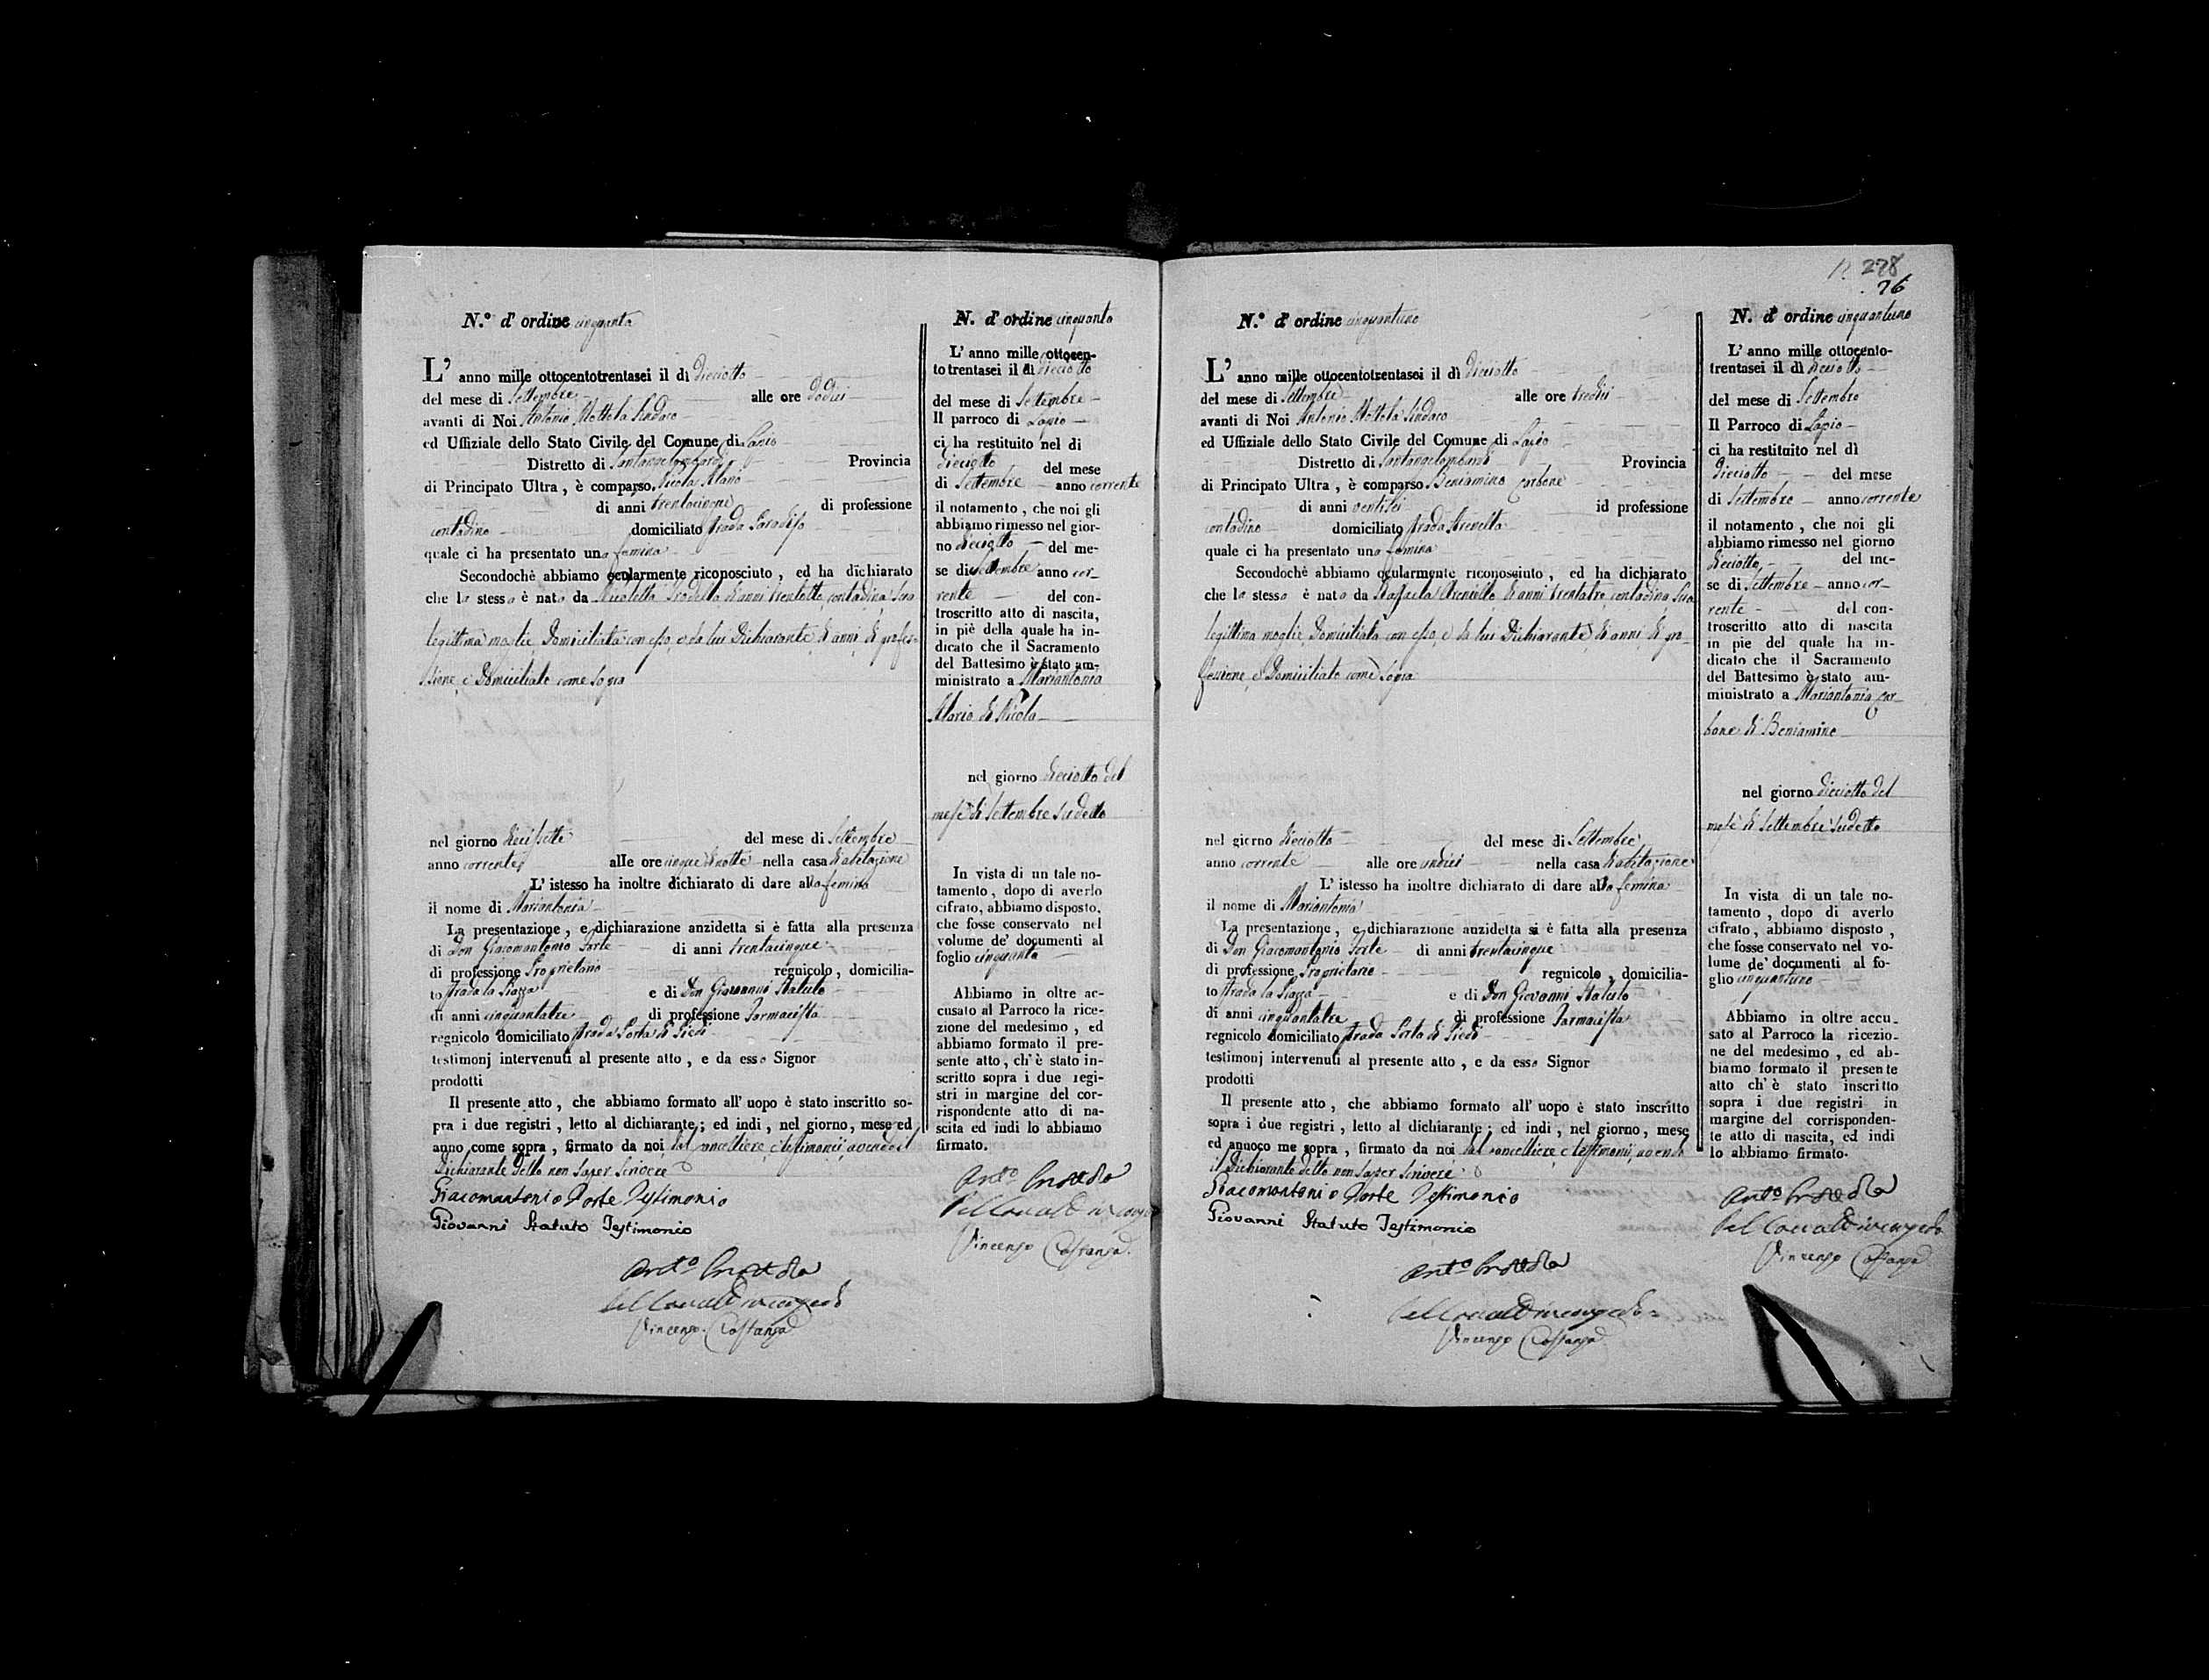 N.º d' ordine cinquanta
L' anno mille ottocentotrentasei il dì Dieciotto
del mese di Settembre alle ore dodici
avanti di Noi Antonio Mottola Sindaco
ed Uffiziale dello Stato Civile del Comune di Lapio
Distretto di Santangelombardi Provincia
di Principato Ultra, è comparso Nicola
di anni di professione
contadino domiciliato strada Paradiso
quale ci ha presentato una femina
Secondochè abbiamo ocularmente riconosciuto, ed ha dichiarato
che la stessa è nata da Nicoletta di anni trentotto contadina sua
legittima moglie Domiciliata con esso, e da lui Dichiarante di anni di profes-
sione e Domiciliato come sopra
nel giorno diecisette del mese di Settembre
anno corrente alle ore cinque di notte nella casa d'abitazione
L' istesso ha inoltre dichiarato di dare alla femina
il nome di Mariantonia
La presentazione, e dichiarazione anzidetta si è fatta alla presenza
di Don Giacomantonio Forte di anni trentacinque
di professione Proprietario regnicolo, domicilia-
to strada la Piazza e di Don Giovanni Statuto
di anni cinquantatre di professione Farmacista
regnicolo domiciliato strada Porta di Piedi
testimonj intervenuti al presente atto, e da esso Signor
prodotti
Il presente atto, che abbiamo formato all' uopo è stato inscritto so-
pra i due registri, letto al dichiarante; ed indi, nel giorno, mese ed
anno come sopra, firmato da noi dal cancelliere, e testimonii, avendo il
Dichiarante detto non saper scrivere
Giacomantonio Forte Testimonio
Giovanni Statuto Testimonio
Vincenzo Costanza
N. d' ordine cinquanta
L' anno mille ottocen-
to trentasei il dì dieciotto
del mese di Settembre
Il parroco di Lapio
ci ha restituito nel dì
dieciotto del mese
di Settembre anno corrente
il notamento, che noi gli
abbiamo rimesso nel gior-
no dieciotto del me-
se di Settembre anno cor-
rente del con-
troscritto atto di nascita,
in piè della quale ha in-
dicato che il Sacramento
del Battesimo è stato am-
ministrato a Mariantonia
di Nicola
nel giorno dieciotto del
mese di Settembre sudetto
In vista di un tale no-
tamento, dopo di averlo
cifrato, abbiamo disposto,
che fosse conservato nel
volume de' documenti al
foglio cinquanta
Abbiamo in oltre ac-
cusato al Parroco la rice-
zione del medesimo, ed
abbiamo formato il pre-
sente atto, ch' è stato in-
scritto sopra i due regi-
stri in margine del cor-
rispondente atto di na-
scita ed indi lo abbiamo
firmato.
Vincenzo Costanza
278
76
N.º d' ordine cinquantuno
L' anno mille ottocentotrentasei il dì Dieciotto
del mese di Settembre alle ore tredici
avanti di Noi Antonio Mottola Sindaco
ed Uffiziale dello Stato Civile del Comune di Lapio
Distretto di Santangelombardi Provincia
di Principato Ultra, è comparso Beniamino Carbone
di anni ventisei id professione
contadino domiciliato strada
quale ci ha presentato una femina
Secondochè abbiamo ocularmente riconosciuto, ed ha dichiarato
che la stessa è nata da Raffaela di anni trentatre contadina sua
legittima moglie Domiciliata con esso, e da lui Dichiarante di anni di pro-
fessione, e Domiciliato come sopra
nel giorno dieciotto del mese di Settembre
anno corrente alle ore undici nella casa d'abitazione
L' istesso ha inoltre dichiarato di dare alla femina
il nome di Mariantonia
La presentazione, e dichiarazione anzidetta si è fatta alla presenza
di Don Giacomantonio Forte di anni trentacinque
di professione Proprietario regnicolo, domicilia-
to strada la Piazza e di Don Giovanni Statuto
di anni cinquantatre di professione Farmacista
regnicolo domiciliato strada Porta di Piedi
testimonj intervenuti al presente atto, e da esso Signor
prodotti
Il presente atto, che abbiamo formato all' uopo è stato inscritto
sopra i due registri, letto al dichiarante; ed indi, nel giorno, mese
ed annoco me sopra, firmato da noi dal cancelliere, e testimonii, avendo
il Dichiarante detto non saper scrivere
Giacomantonio Forte Testimonio
Giovanni Statuto Testimonio
Vincenzo Costanza
N. d' ordine cinquantuno
L' anno mille ottocento-
trentasei il dì dieciotto
del mese di Settembre
Il Parroco di Lapio
ci ha restituito nel dì
dieciotto del mese
di Settembre anno corrente
il notamento, che noi gli
abbiamo rimesso nel giorno
dieciotto del me-
se di Settembre anno cor-
rente del con-
troscritto atto di nascita
in piè del quale ha in-
dicato che il Sacramento
del Battesimo è stato am-
ministrato a Mariantonia Car-
bone di Beniamino
nel giorno dieciotto del
mese di Settembre sudetto
In vista di un tale no-
tamento, dopo di averlo
cifrato, abbiamo disposto,
che fosse conservato nel vo-
lume de' documenti al fo-
glio cinquantuno
Abbiamo in oltre accu-
sato al Parroco la ricezio-
ne del medesimo, ed ab-
biamo formato il presente
atto ch' è stato inscritto
sopra i due registri in
margine del corrisponden-
te atto di nascita, ed indi
lo abbiamo firmato.
Vincenzo Costanza